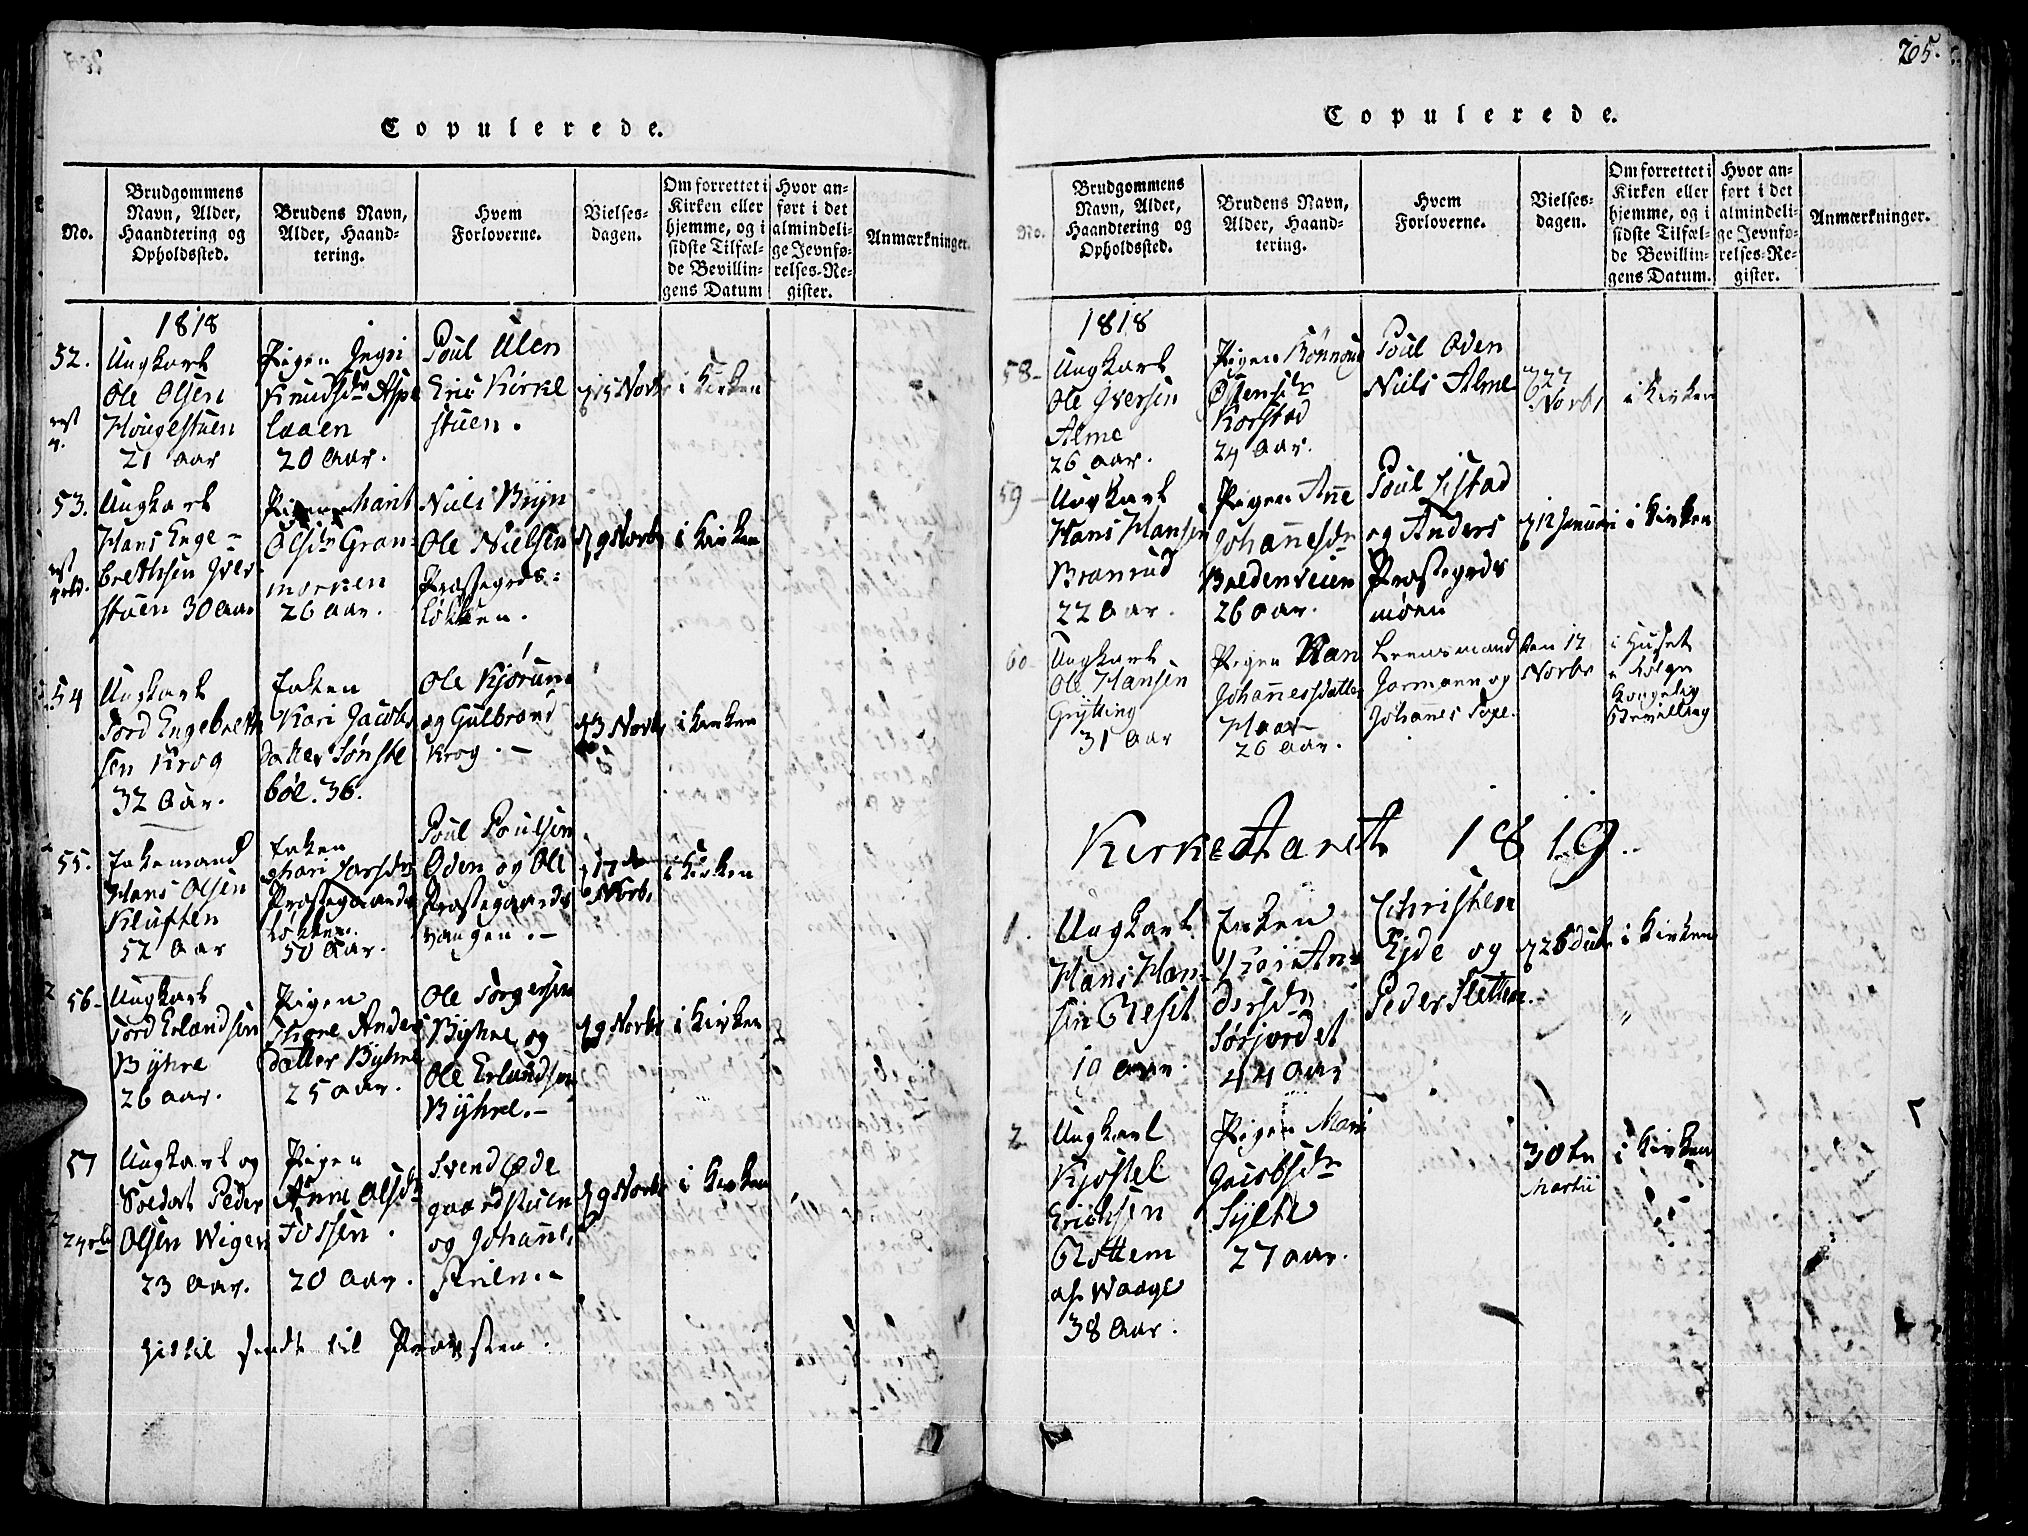 Copulerede.
No.
Brudgommens
Navn, Alder,
Haandtering og
Opholdssted.
Brudens Navn,
Alder, Haand-
tering.
Hvem
Forloverne.
Vielses-
dagen.
Om forrettet i
Kirken eller
hjemme, og i
sidste Tilfæl-
de Bevillin-
gens Datum
Hvor an-
ført i det
almindeli-
ge Jevnfø-
relses-Re-
gister.
Anmærkninger.
1818
52.
Ungkarl
Ole Olsen
Hougestuen
21 aar
Pigen Ingri
Knudsdr Aspe
laaen
20 Aar.
Poul Ulen
Eric Kirke
stuen.
15 Novbr
i Kirken
53.
Ungkarl
Hans Enge-
brethsen Iver
stuen 30 aar
Pigen Marit
Olsdr Gran-
morken
26 aar.
Niels Bryn
Ole Nielsen
Præstegrds-
løkken.
9 Novbr
i Kirken
54
Ungkarl
Tord Engebreth
sen Krog
32 Aar.
Enken
Kari Jacobs
datter Sønste
bøl. 36.
Ole Kjørum
og Gulbrand
Krog.-
3 Novbr
i Kirken
55.
Enkemand
Hans Olsen
Kluften
52 Aar
Enken
Mari Larsdr
Præstegaards
løkken.
50 Aar.
Poul Poulsen
Oden og Ole
Præstegaards
vangen.-
17de
Novbr
i Kirken
56-
Ungkarl
Tord Erlandsen
Byhre
26 aar.
Pigen
Thore Anders
datter Byhre
25 aar.
Ole Torgersen
Byhre og
Ole Erlandsen
Byhre.-
9 Novbr
i Kirken
57
Ungkarl og
Soldat Peder
Olsen Wigen
23 Aar.
Pigen
Anne Olsdr
Fossen.
20 Aar.
Svend Øde
gaardstuen
og Johannes
9 Novbr
i Kirken
hertil sendt til Provsten.
205.
Copulerede.
No.
Brudgommens
Navn, Alder,
Haandtering og
Opholdssted.
Brudens Navn,
Alder, Haand-
tering.
Hvem
Forloverne.
Vielses-
dagen.
Om forrettet i
Kirken eller
hjemme, og i
sidste Tilfæl-
de Bevillin-
gens Datum.
Hvor an-
ført i det
almindeli-
ge Jevnfø-
relses-Re-
gister.
Anmærkninger.
1818
58-
Ungkarl
Ole Iversen
Alme
26 aar.
Pigen Rønnoug
Østensdr
Korstad
24 Aar.
Poul Oden
Niels Alme
27
Novbr
i Kirken
59-
Ungkarl
Hans Hansen
Branrud
22 Aar.
Pigen Anne
Johannesdr
Bredenveien
26 aar.
Poul Listad
og Anders
Præstegrds
moen
12 Januari
i Kirken
60-
Ungkarl
Ole Hansen
Grytting
31 Aar
Pigen Ran
Johannesdatter
Haar
26 aar.
Lensmand
Jormann og
Johannes Tofte.
den 17
Novbr
i Huset
Følge
Kongelig
Bevilling
Kirke Aaret 1819.
1.
Ungkarl
Hans Han-
sen
Enken
An-
dersdr
Sørjordet
44 Aar
Christen
Eide og
Peder Sletten.
26 Dec
i Kirken
"
2
Ungkarl
Kjostel
Erichsen
Rottem
af Waage
38 Aar.
Pigen Mari
Jacobsdr
Sylte
27 aar.
30te
Martii
i Kirken